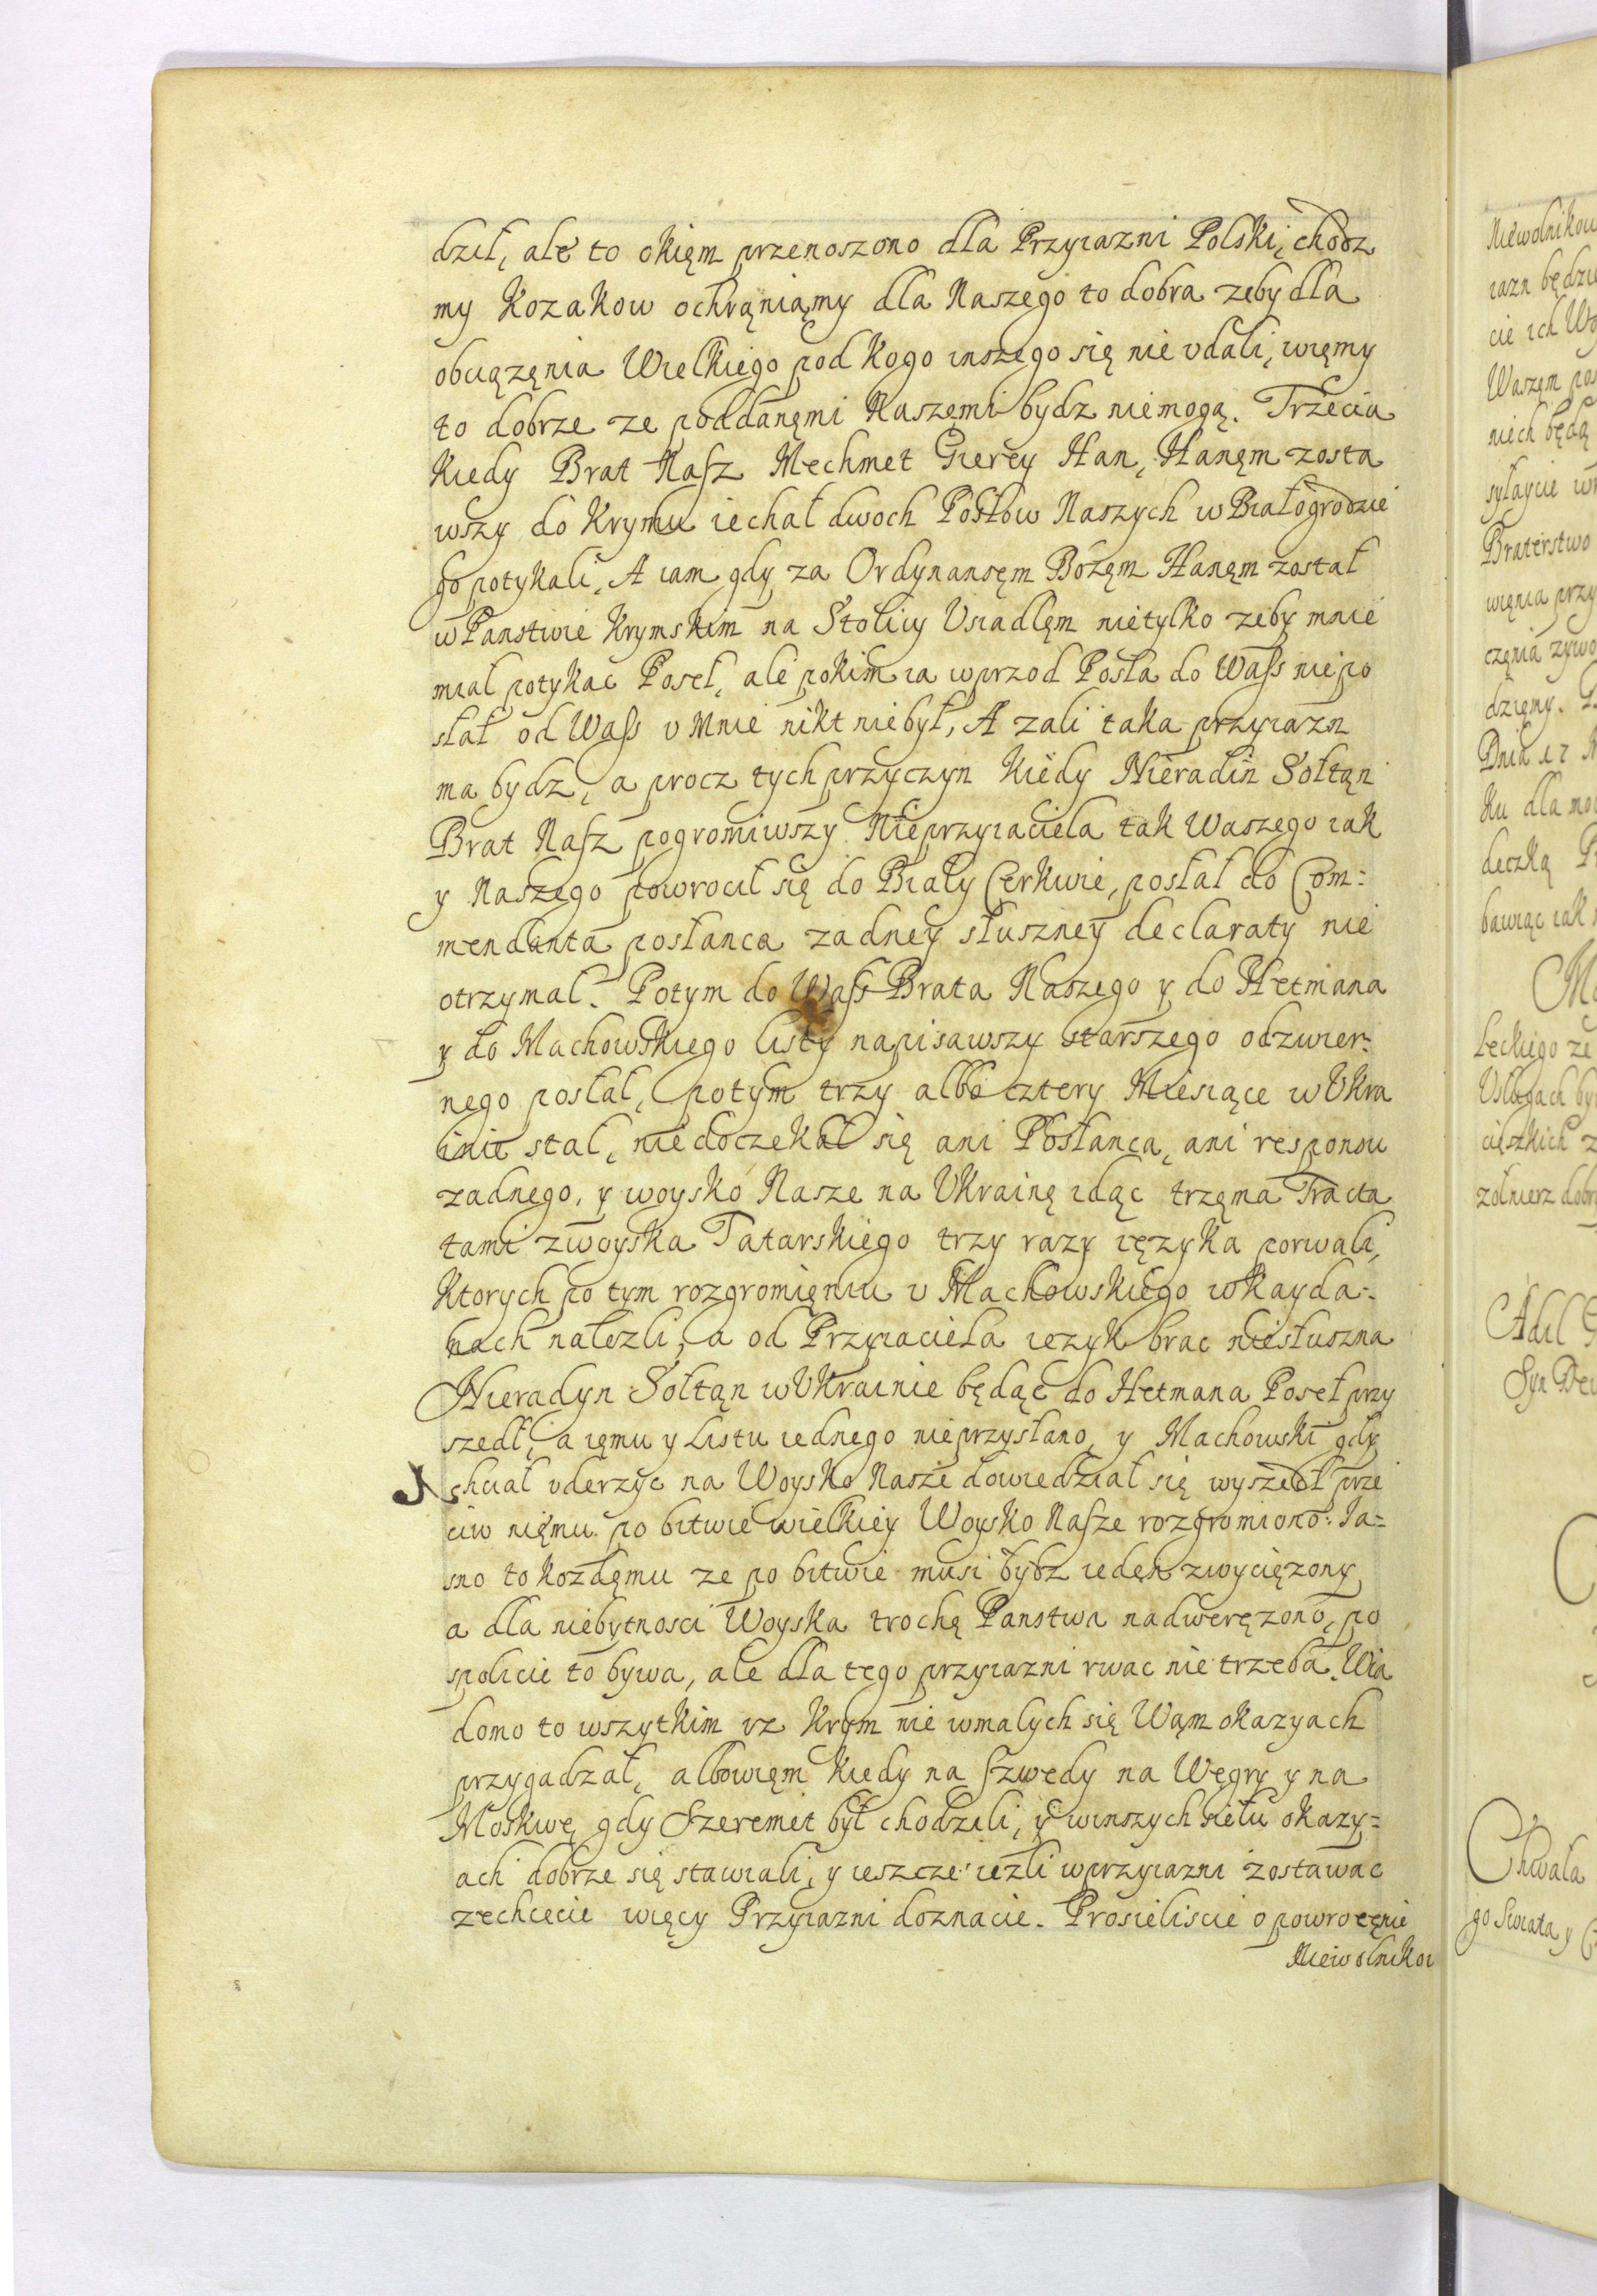 dził, ale to okięm przenoszono dla Przyiazni Polski, chodz
my Kozakow ochrąniąmy dla Naszego to dobra zeby dla
obciązęnia Wielkiego pod kogo inszego się nie vdali, więmy
to dobrze ze poddanęmi Naszęmi bydz niemogą. Trzecia
Kiedy Brat Nasz Mechmet Gierey Han, Hanęm zosta
wszy do Krymu iechał dwoch Posłow Naszych w Białogrodzie
go potykali, A iam gdy za Ordynansęm Bozęm Hanęm został
w Panstwie Krymskim na Stolicy Vsiadlęm nietylko zeby mnie
miał potykac Poseł, ale pokim ia wprzod Posła do Wass niepo
słał od Wass v mnie nikt niebył, A zali taka przyiazn
ma bydz, a procz tych przyczyn Kiedy Nieradin Sołtąn
Brat Nasz pogromiwszy Nieprzyiaciela tak Waszego iak
y Naszego powrocił się do Biały Cerkwie, posłał do Com:
mendanta posłanca zadney słuszney declaraty nie
otrzymał. Potym do Wass Brata Naszego y do Hetmana
y do Machowskiego listy napisawszy starszego odzwier:
nego posłał, potym trzy albo cztery Miesiące w Vkra
inie stał, niedoczekał się ani Posłanca, ani responsu
zadnego, y woysko Nasze na Vkrainę idąc trzęma Tracta
tami zwoyska Tatarskiego trzy razy ięzyka porwali,
Ktorych po tym rozgromięniu v Machowskiego w Kayda:
nach nalezli, a od Przyiaciela iezyk brac niesłuszna
Nieradyn Sołtąn w Vkrainie będąc do Hetmana Poseł przy
szedł, a ięmu y Listu iednego nieprzysłano, y Machowski gdy
chciał vderzyc na Woysko Nasze dowiedział się wyszedł prze
ciw nięmu po bitwie wielkiey Woysko Nasze rozgromiono. Ia=
sno to kozdęmu ze po bitwie musi bydz iedęn zwycięzony
a dla niebytnosci Woyska trochę Panstwa nadweręzono, po
spolicie to bywa, ale dla tego przyiazni rwac nie trzeba. Wia
domo to wszytkim iz Krym nie wmałych się Wąm okazyach
przygadzał, albowięm kiedy na Szwedy na Węgry y na
Moskwę gdy Szeremet był chodzili, y winszych sielu okazy=
ach dobrze się stawiali, y ieszcze iezli wprzyiazni zostawac
zechcecie więcy Przyiazni doznacie. Prosieliscie o powrocęnie
Niewolnikow